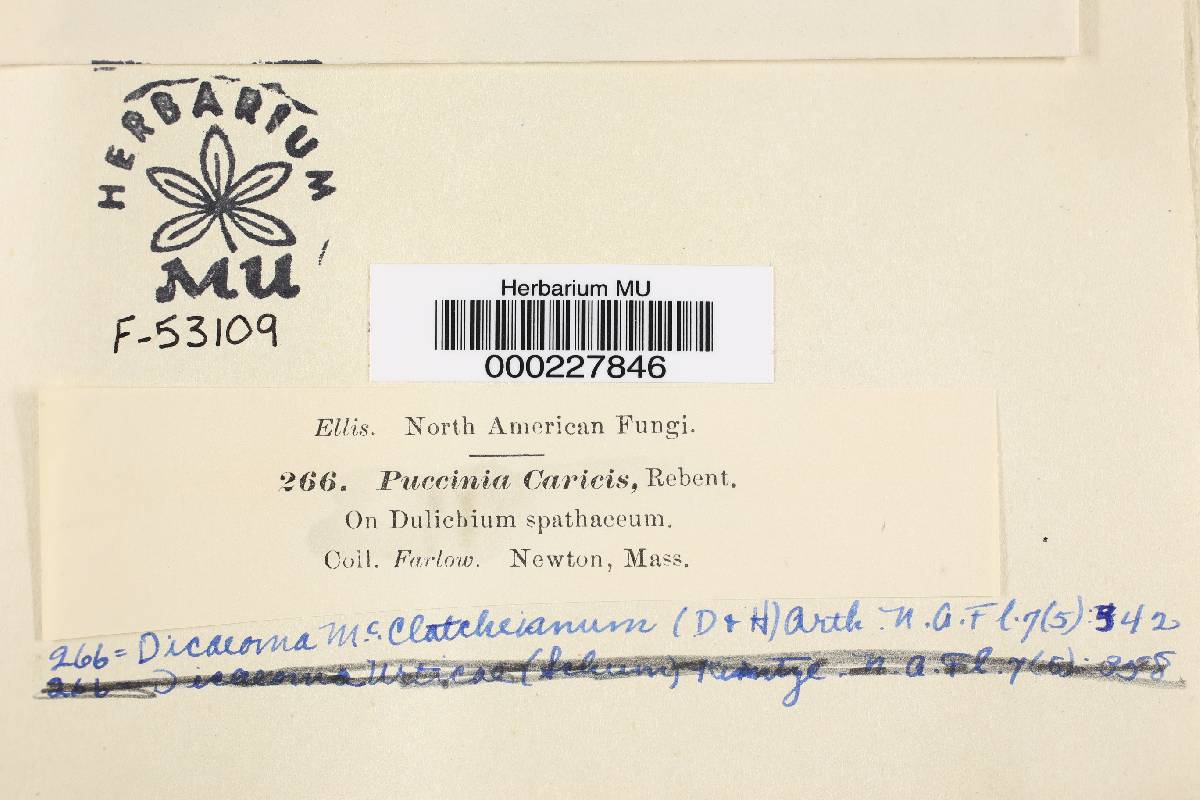 HERBARIUM
MU
F-53109
Herbarium MU
000227846
Ellis. North American Fungi.
266. Puccinia Caricis, Rebent.
On Dulichium spathaceum.
Coll. Farlow. Newton, Mass.
266 = Dicaeoma McClatchieanum (D & H) Arth. N. A. Fl. 7(5): 342
266 Dicaeoma Urticae (Schum) Kuntze. N. A. Fl. 7(5):